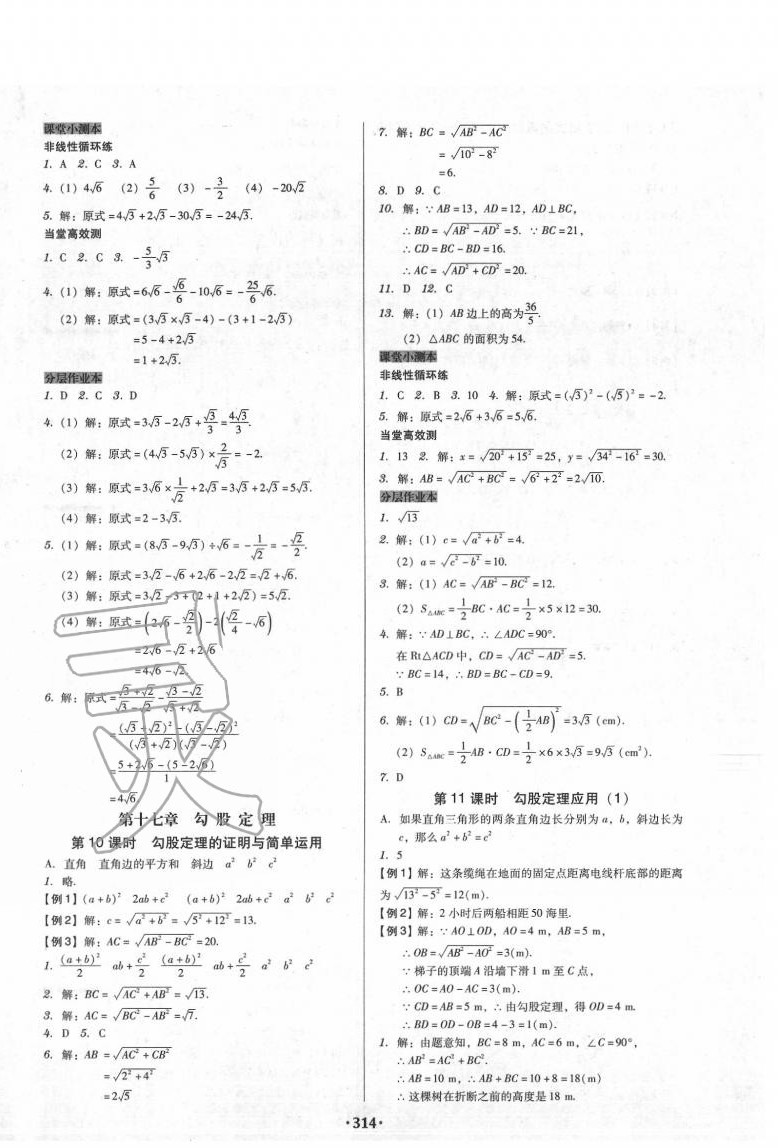 课堂小测本
非线性循环练
1. A 2. C 3. A
4. (1) 4√6 (2) 5/6 (3) -3/2 (4) -20√2
5. 解：原式=4√3+2√3-30√3=-24√3.
当堂高效测
1. C 2. C 3. -5/3√3
4. (1) 解：原式=6√6-√6/6-10√6=-25/6√6.
(2) 解：原式=(3√3×√3-4)-(3+1-2√3)
=5-4+2√3
=1+2√3.
分层作业本
1. D 2. C 3. D
4. (1) 解：原式=3√3-2√3+√3/3=4√3/3.
(2) 解：原式=(4√3-5√3)×2/√3=-2.
(3) 解：原式=3√6×1/√2+2√3=3√3+2√3=5√3.
(4) 解：原式=2-3√3.
5. (1) 解：原式=(8√3-9√3)÷√6=-1/√2=-√2/2.
(2) 解：原式=3√2-√6+2√6-2√2=√2+√6.
(3) 解：原式=3√2-3+(2+1+2√2)=5√2.
(4) 解：原式=(2√6-√2/2)-2(√2/4-√6)
=2√6-√2+2√6
=4√6-√2.
6. 解：原式=(√3+√2)/(√3-√2)-(√3-√2)/(√3+√2)
=((√3+√2)²-(√3-√2)²)/((√3+√2)(√3-√2))
=(5+2√6-(5-2√6))/1
=4√6.
第十七章 勾股定理
第10课时 勾股定理的证明与简单运用
A. 直角 直角边的平方和 斜边 a² b² c²
1. 略.
【例1】(a+b)² 2ab+c² (a+b)² 2ab+c² a² b² c²
【例2】解：c=√(a²+b²)=√(5²+12²)=13.
【例3】解：AC=√(AB²-BC²)=20.
1. (a+b)²/2 ab+c²/2 (a+b)²/2 ab+c²/2 a² b² c²
2. 解：BC=√(AC²+AB²)=√13.
3. 解：AC=√(BC²-AB²)=√7.
4. D 5. C
6. 解：AB=√(AC²+CB²)
=√(2²+4²)
=2√5
7. 解：BC=√(AB²-AC²)
=√(10²-8²)
=6.
8. D 9. C
10. 解：∵AB=13，AD=12，AD⊥BC，
∴BD=√(AB²-AD²)=5. ∵BC=21，
∴CD=BC-BD=16.
∴AC=√(AD²+CD²)=20.
11. D 12. C
13. 解：(1) AB边上的高为36/5.
(2) △ABC的面积为54.
课堂小测本
非线性循环练
1. C 2. B 3. 10 4. 解：原式=(√3)²-(√5)²=-2.
5. 解：原式=2√6+3√6=5√6.
当堂高效测
1. 13 2. 解：x=√(20²+15²)=25，y=√(34²-16²)=30.
3. 解：AB=√(AC²+BC²)=√(6²+2²)=2√10.
分层作业本
1. √13
2. 解：(1) c=√(a²+b²)=4.
(2) a=√(c²-b²)=10.
3. 解：(1) AC=√(AB²-BC²)=12.
(2) S△ABC=1/2BC·AC=1/2×5×12=30.
4. 解：∵AD⊥BC，∴∠ADC=90°.
在Rt△ACD中，CD=√(AC²-AD²)=5.
∵BC=14，∴BD=BC-CD=9.
5. B
6. 解：(1) CD=√(BC²-(1/2AB)²)=3√3(cm).
(2) S△ABC=1/2AB·CD=1/2×6×3√3=9√3(cm²).
7. D
第11课时 勾股定理应用（1）
A. 如果直角三角形的两条直角边长分别为a，b，斜边长为
c，那么a²+b²=c²
1. 5
【例1】解：这条缆绳在地面的固定点距离电线杆底部的距离
为√(13²-5²)=12(m).
【例2】解：2小时后两船相距50海里.
【例3】解：∵AO⊥OD，AO=4m，AB=5m，
∴OB=√(AB²-AO²)=3(m).
∵梯子的顶端A沿墙下滑1m至C点，
∴OC=AO-AC=3(m).
∵CD=AB=5m，∴由勾股定理，得OD=4m.
∴BD=OD-OB=4-3=1(m).
1. 解：由题意知，BC=8m，AC=6m，∠C=90°，
∴AB²=AC²+BC².
∴AB=10m，∴AB+BC=10+8=18(m)
∴这棵树在折断之前的高度是18m.
·314·